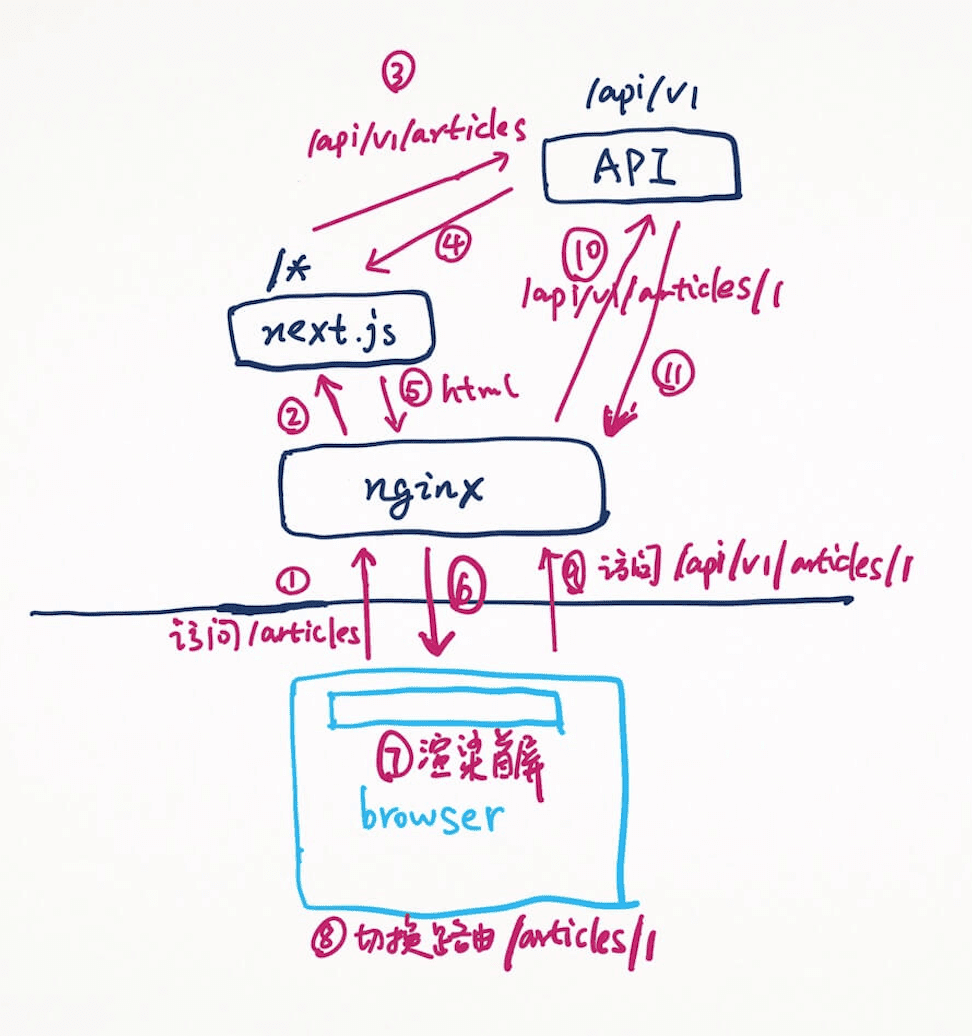 ③
/api/v1
/api/v1/articles
API
④
⑩
/*
/api/v1/articles/1
next.js
⑪
② ⑤ html
nginx
① ⑥ ⑨ 访问 /api/v1/articles/1
访问/articles
⑦ 渲染首屏
browser
⑧ 切换路由 /articles/1